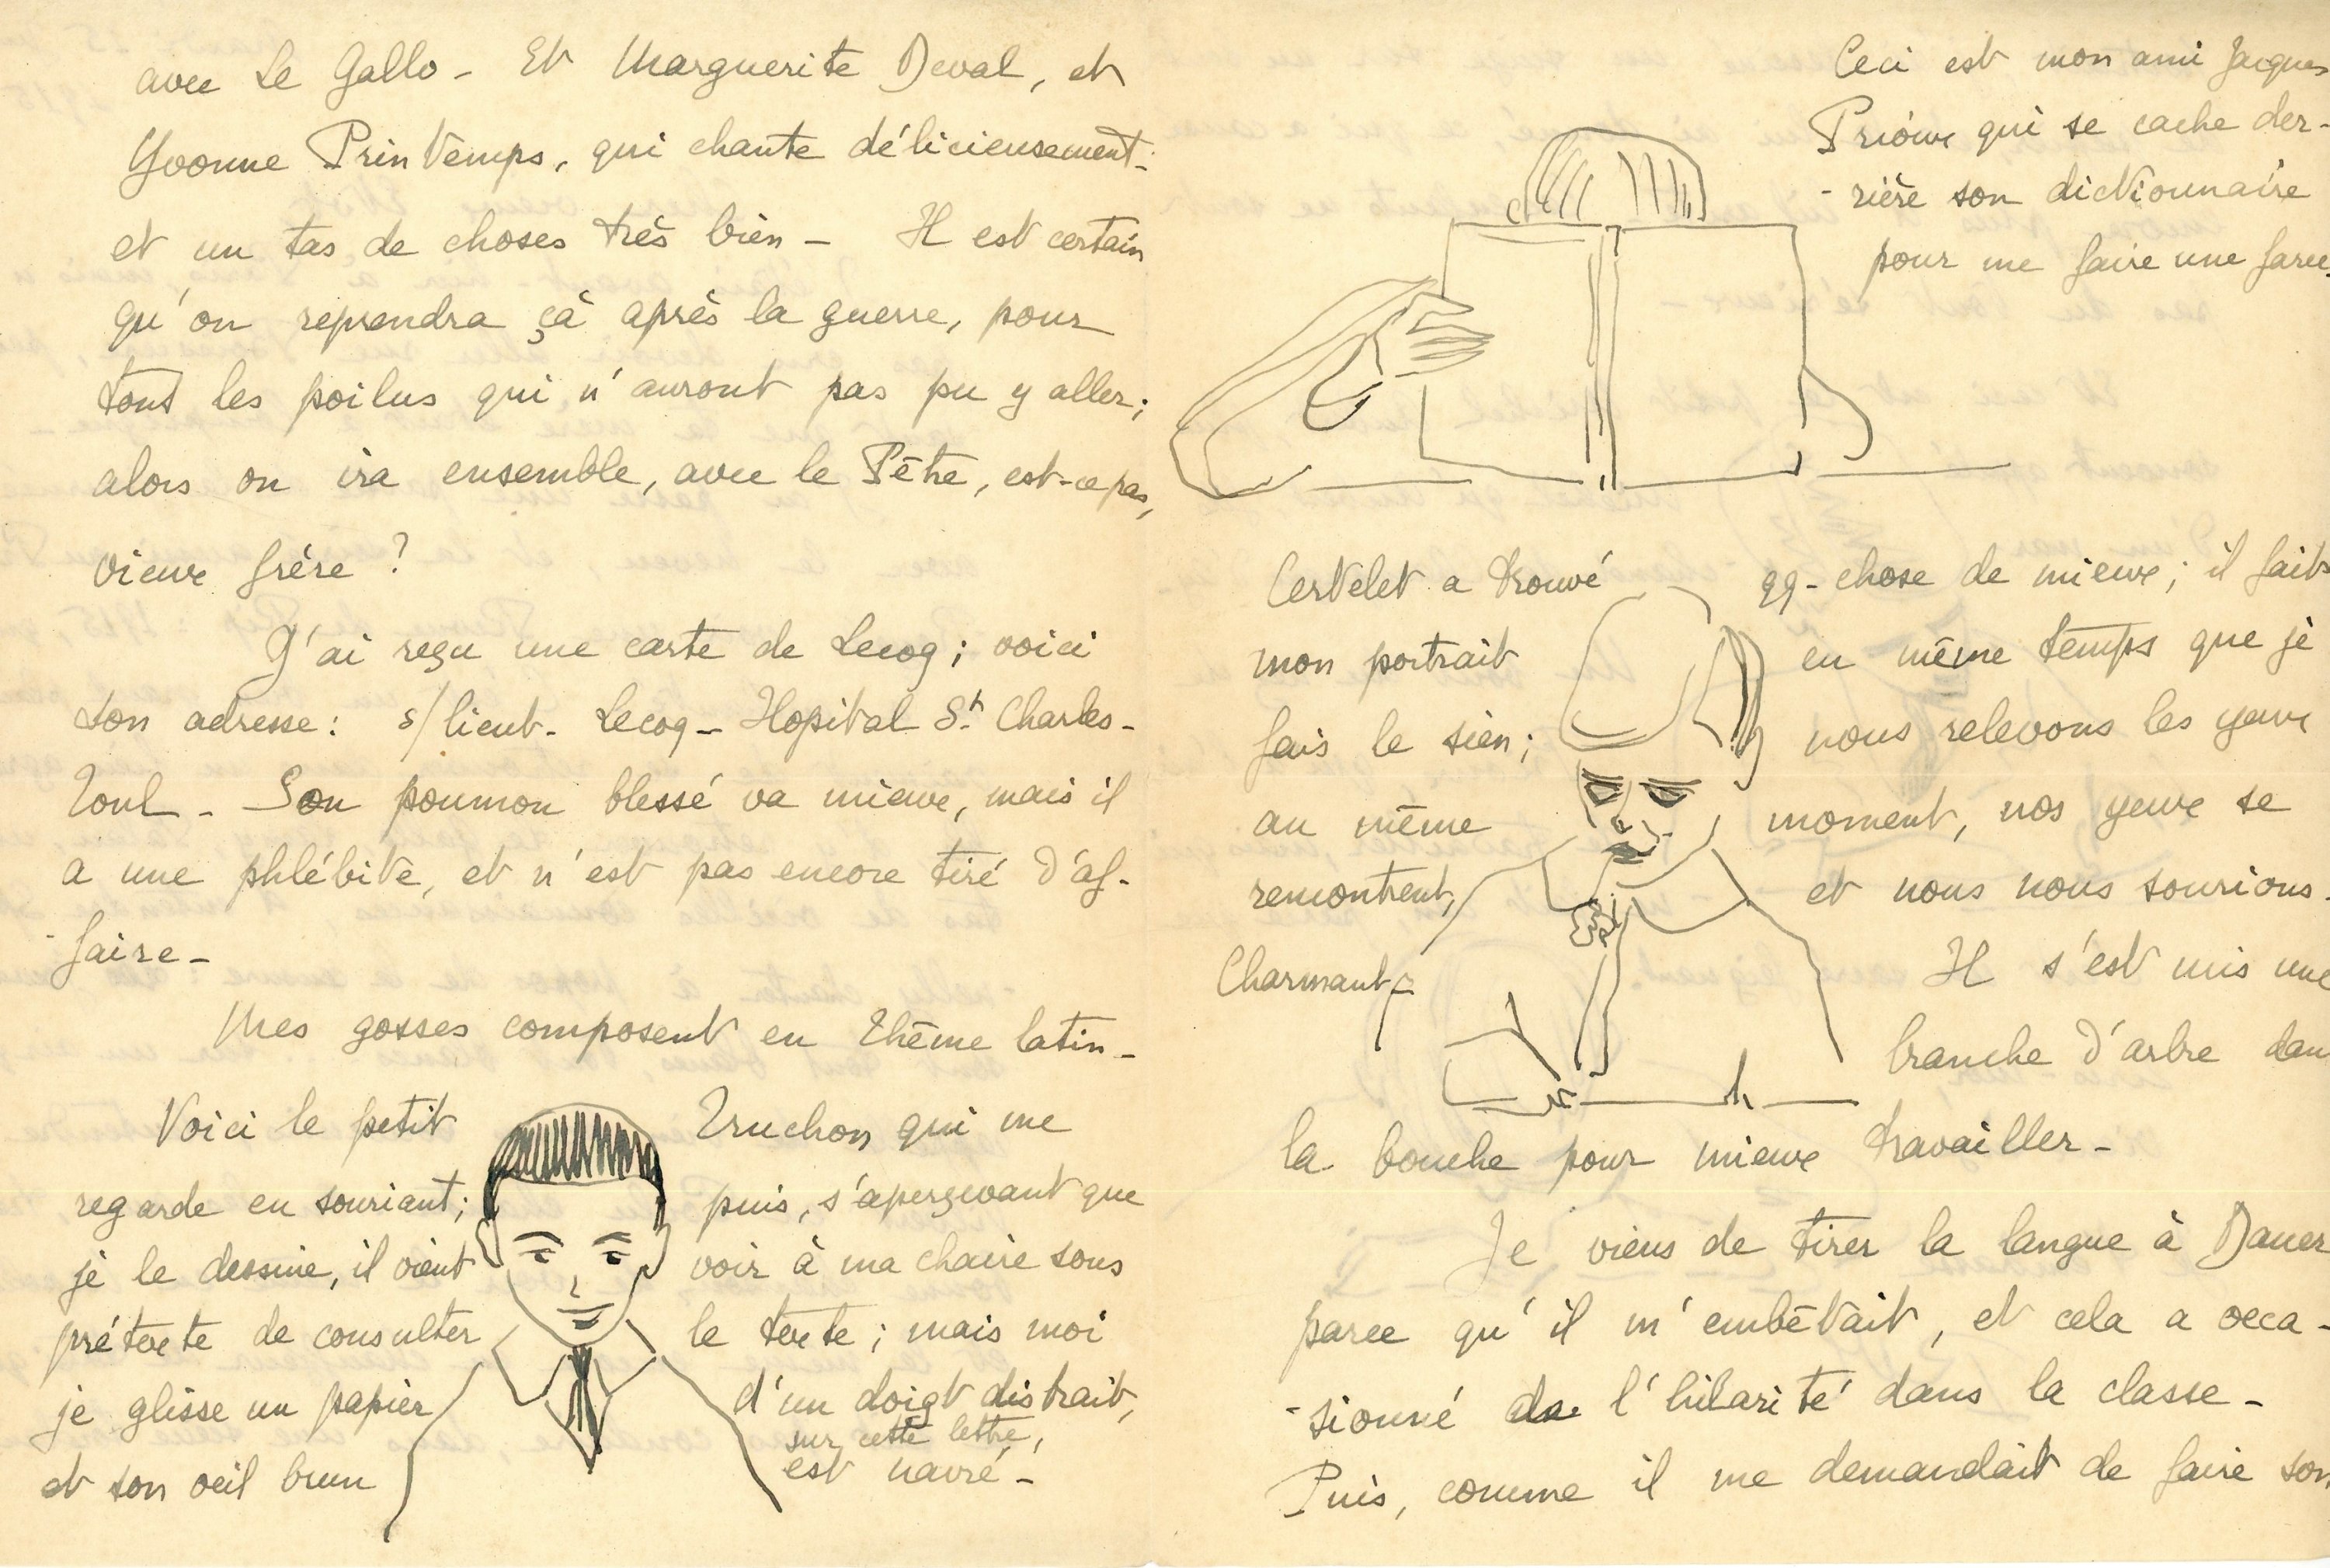 avec Le Gallo - Et Marguerite Deval, et
Yvonne Printemps, qui chante délicieusement -
et un tas de choses très bien - Il est certain
qu'on reprendra çà après la guerre, pour
tous les poilus qui n'auront pas pu y aller;
alors on ira ensemble, avec le Pètre, est-ce pas,
vieux frère ?
J'ai reçu une carte de Lecoq ; voici
son adresse : s/lieut. Lecoq - Hopital St Charles -
Toul - Son poumon blessé va mieux, mais il
a une phlébite, et n'est pas encore tiré d'af-
-faire -
Mes gosses composent en thême latin -
Voici le petit Truchon qui me
regarde en souriant; puis, s'aperçevant que
je le dessine, il vient voir à ma chaire sous
prétexte de consulter le texte ; mais moi
je glisse un papier d'un doigt distrait,
sur cette lettre,
et son oeil brun est navré -
Ceci est mon ami Jacques
Prioux qui se cache der-
-rière son dictionnaire
pour me faire une farce.
Certelet a trouvé qq-chose de mieux ; il fait
mon portrait en même temps que je
fais le sien ; nous relevons les yeux
au même moment, nos yeux se
rencontrent, et nous nous sourions.
Charmant - Il s'est mis une
branche d'arbre dans
la bouche pour mieux travailler -
Je viens de tirer la langue à Dauer
parce qu'il m'embêtait, et cela a occa-
-sionné de l'hilarité dans la classe -
Puis, comme il me demandait de faire son